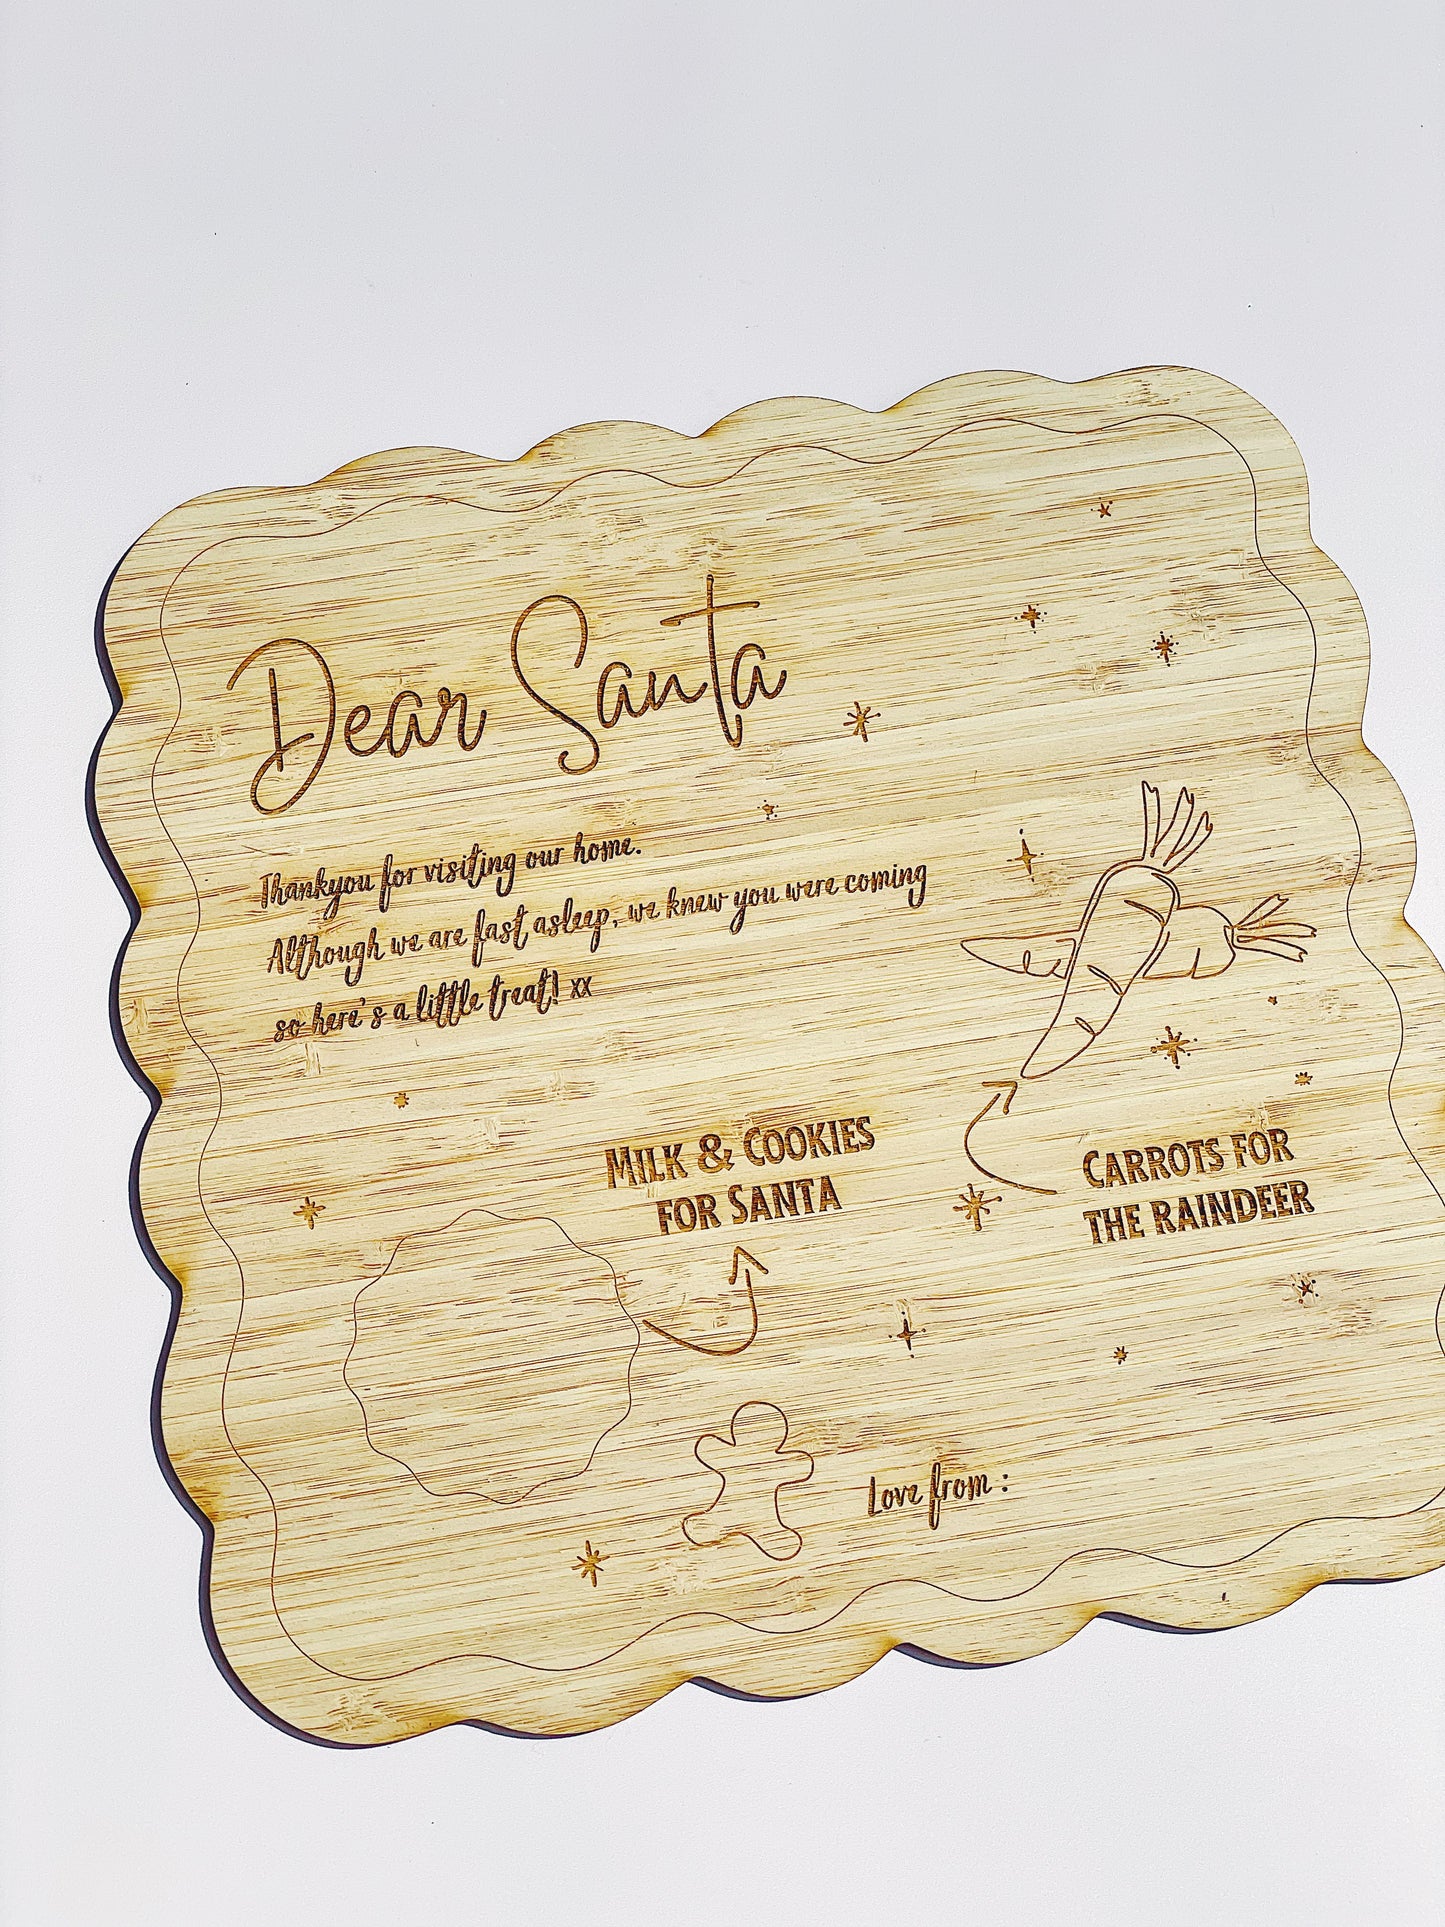 Dear Santa
Thankyou for visiting our home.
Although we are fast asleep, we knew you were coming
so here's a little treat! xx
MILK & COOKIES
FOR SANTA
CARROTS FOR
THE RAINDEER
Love from :